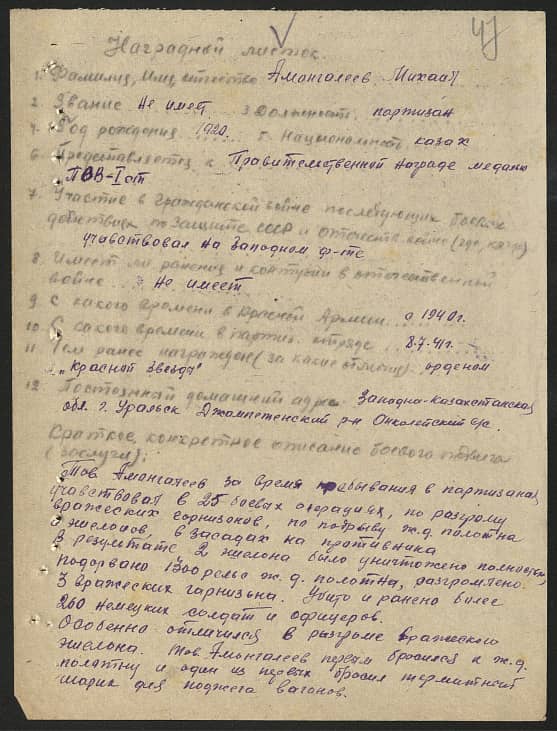 47
Наградной листок.
1. Фамилия, Имя, отчество Амангалеев Михаил
2. Звание не имет 3 Должность партизан
4. Год рождения 1920 г. Национальность казах
6. Представляется к Правительственной награде медалю
"ПОВ-I ст
7. Участие в Гражданской войне последующих боевых
действиях по защите СССР и отечеств. войне (где, когда)
учавствовал на Западном ф-те
8. Имеет ли ранения и контузии в отечественной
войне не имеет
9. С какого времени в Красной Армии с 1940 г.
10. С какого времени в партиз. отряде 8.7.41 г.
11 Чем ранее награжден (за какие отличия) орденом
"Красной Звезды"
12. Постоянный домашний адрес Западно-Казахстанская
обл. г. Уральск Джампетенский р-н с/с.
Краткое, конкретное описание боевого подвига
(заслуги):
Тов Амангалеев за время пребывания в партизанах
учавствовал в 25 боевых операциях, по разгрому
вражеских гарнизонов, по подрыву ж.д. полотна
эшелонов, в засадах на противника
В результате 2 эшелона было уничтожено полностью,
подорвано 1300 рельс ж.д. полотна, разгромлено
3 вражеских гарнизына. Убито и ранено более
260 немецких солдат и офицеров.
Особенно отличился в разгроме вражеского
эшелона. Тов. Амангалеев первым бросился к ж.д.
полотну и один из первых бросил термитный
шарик для поджега вагонов.